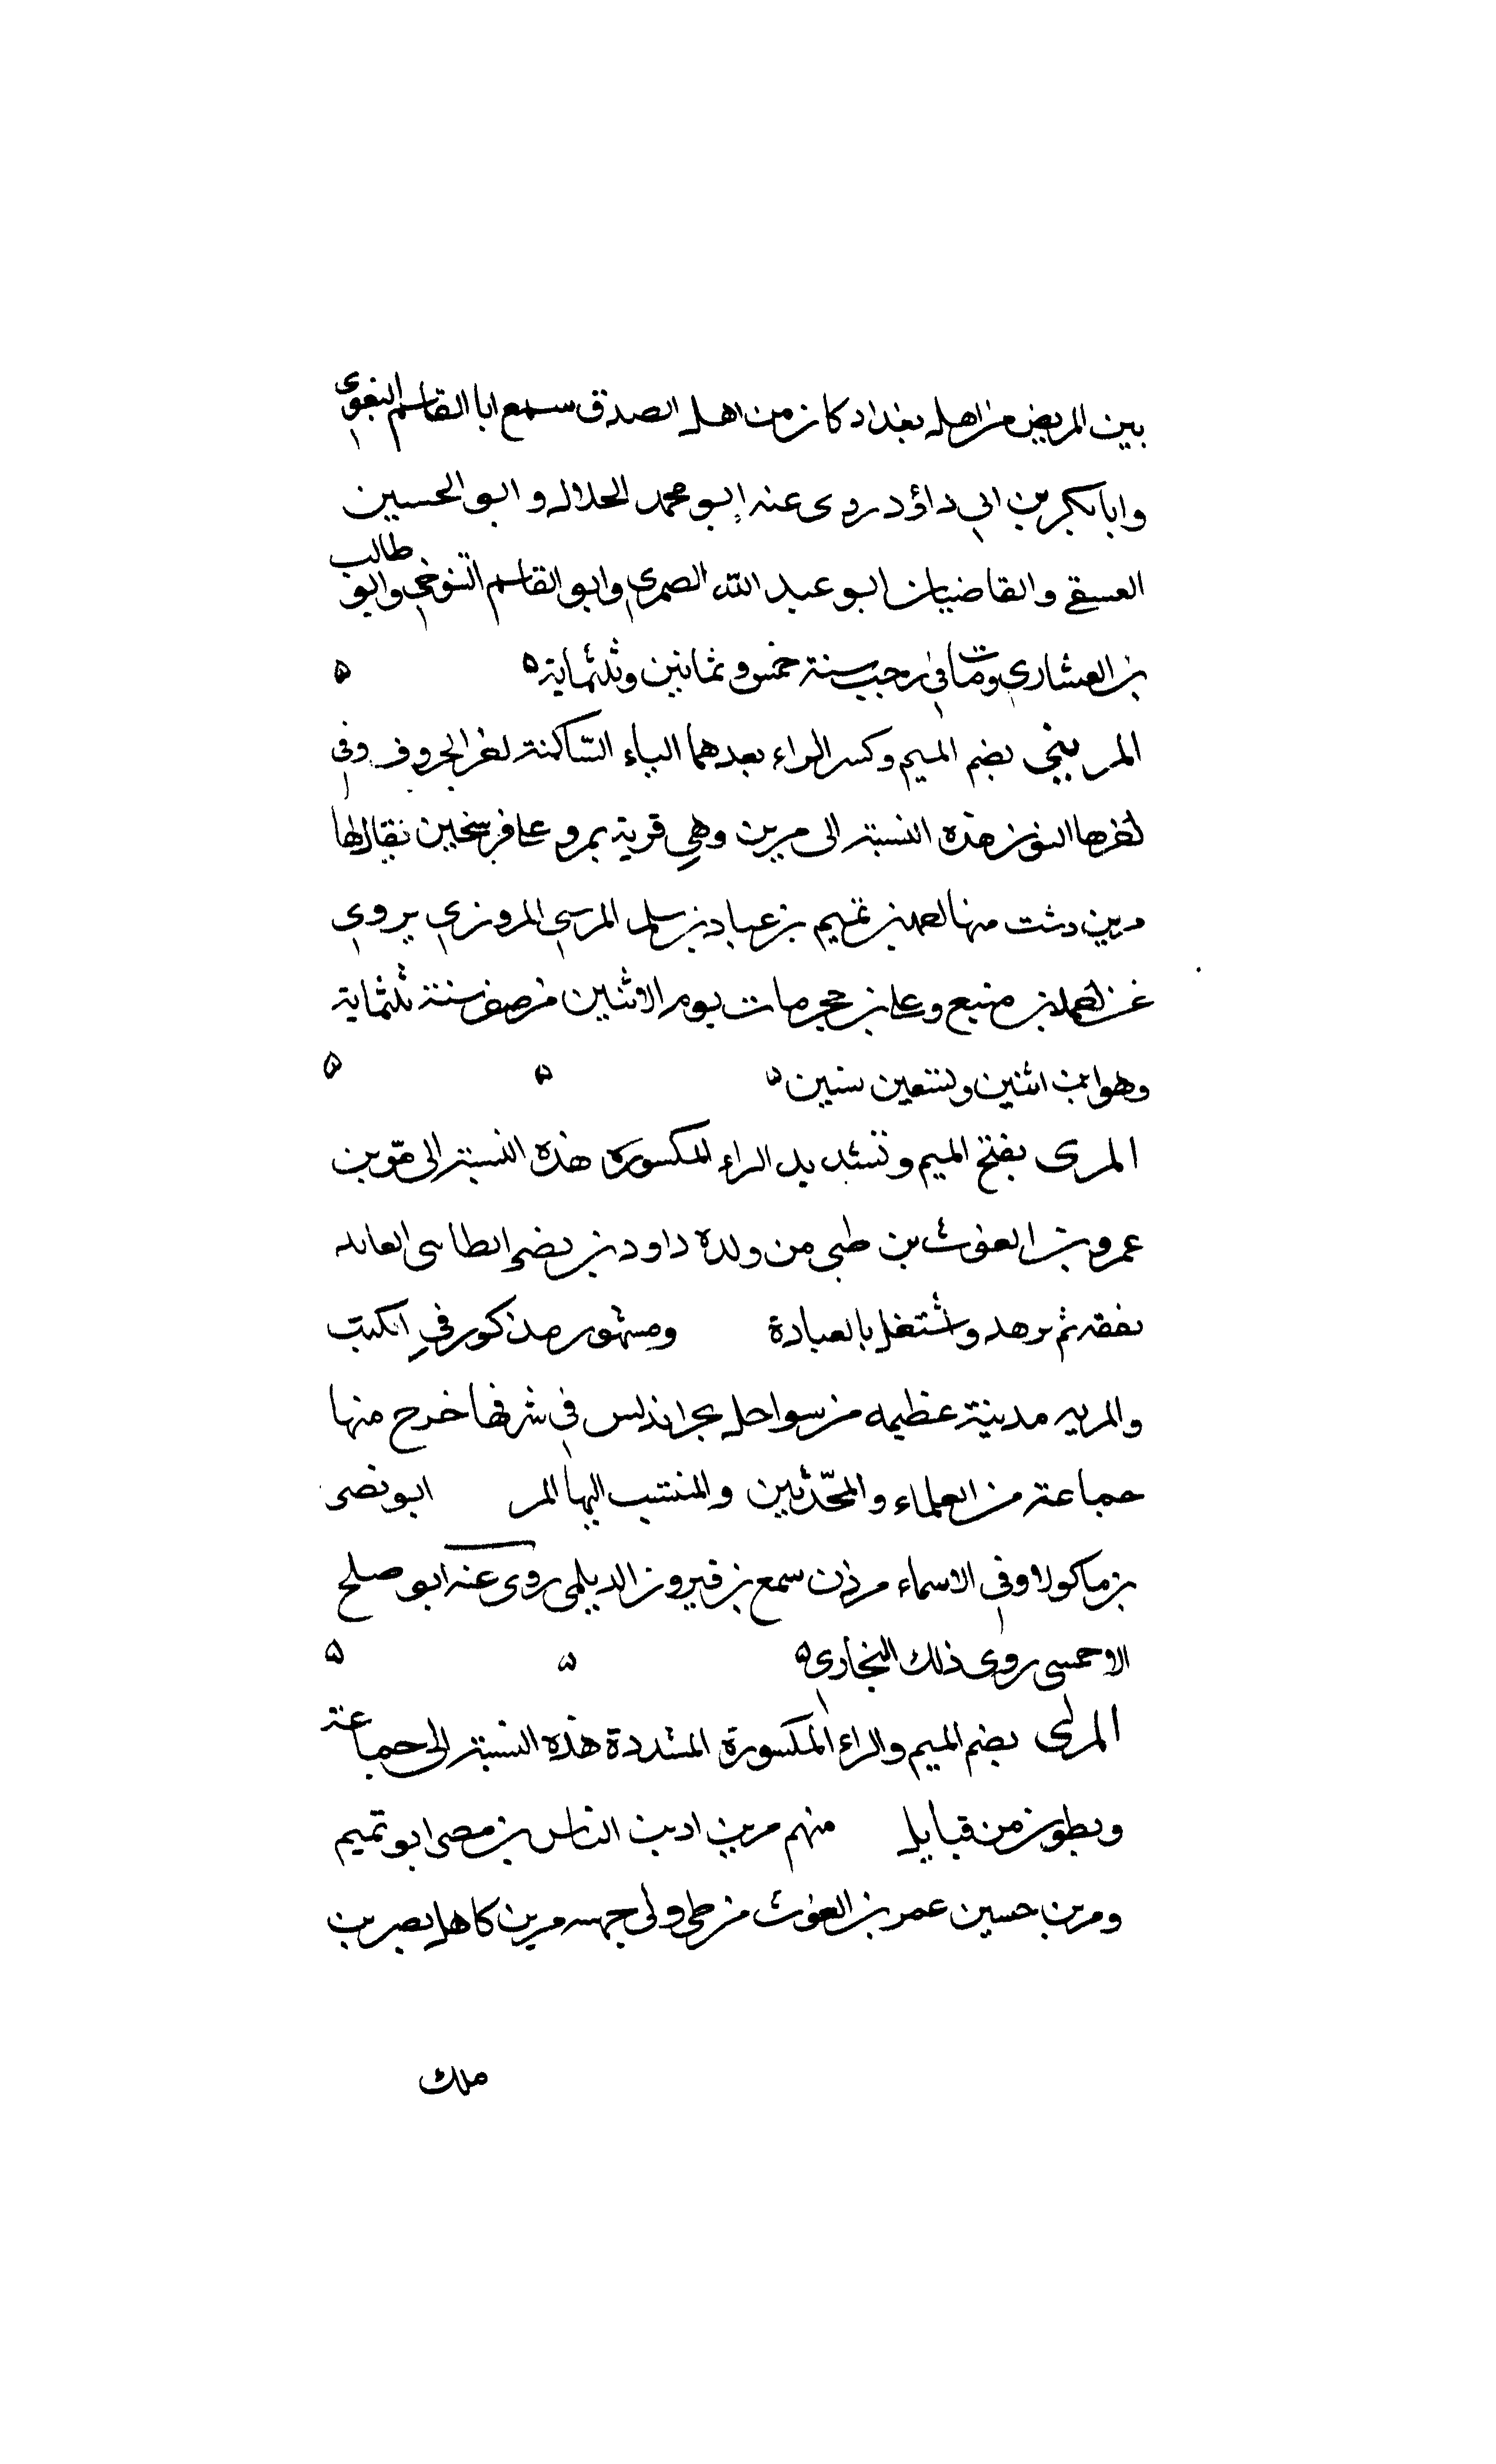 بين المريض من اهل بغداد كان من اهل الصدق سمع ابا القاسم البغوي
وابا بكر بن ابي داؤد روى عنه ابو محمد الخلال و ابو الحسين
العسقي والقاضيان ابو عبد الله الصمري وابو القاسم التنوخي وابو طالب
بن العشاري ومات في رجب سنة خمس وثمانين وثلثماية ٥ ٥
المريني بضم الميم وكسر الراء بعدهما الياء الساكنة اخر الحروف وفي
اخرها النون هذه النسبة الى مرين وهي قرية بمرو على فرسخين يقال لها
مرين دشت منها احمد بن تميم بن عباد بن سلم المريني المروزي يروي
عن احمد بن منيع وعلي بن حجر مات يوم الاثنين من صفر سنة ثلثماية
وهو ابن اثنين وتسعين سنين ٥ ٥ ٥
المرى بفتح الميم وتشديد الراء المكسورة هذه النسبة الى مر بن
عمرو بن الغوث بن طي من ولده داود بن نصير الطائي العابد
تفقه ثم زهد واشتغل بالعبادة ومشهور مذكور في الكتب
والمريه مدينة عظيمه من سواحل بحر اندلس في شرقها خرج منها
جماعة من العلماء والمحدثين والمنتسب اليها المر ابو نصر
بن ماكولا وفي الاسماء مر ذن سمع بن فيروز الديلمي روى عنه ابو صلح
الاحمسي روى ذلك البخاري ٥ ٥ ٥
المرى بضم الميم والراء المكسورة المشددة هذه النسبة الى جماعة
وبطون من قبايل منهم مر بن اد بن الناس بن مضر ابو تميم
ومر بن حسين عمر بن الغوث من طي وفي جهينه مر بن كاهل بن نصر بن
ملك